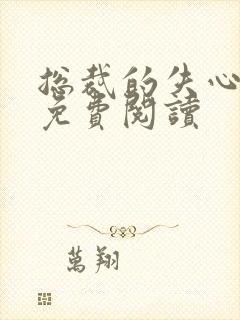 总裁的失心
免費閱讀
萬翔